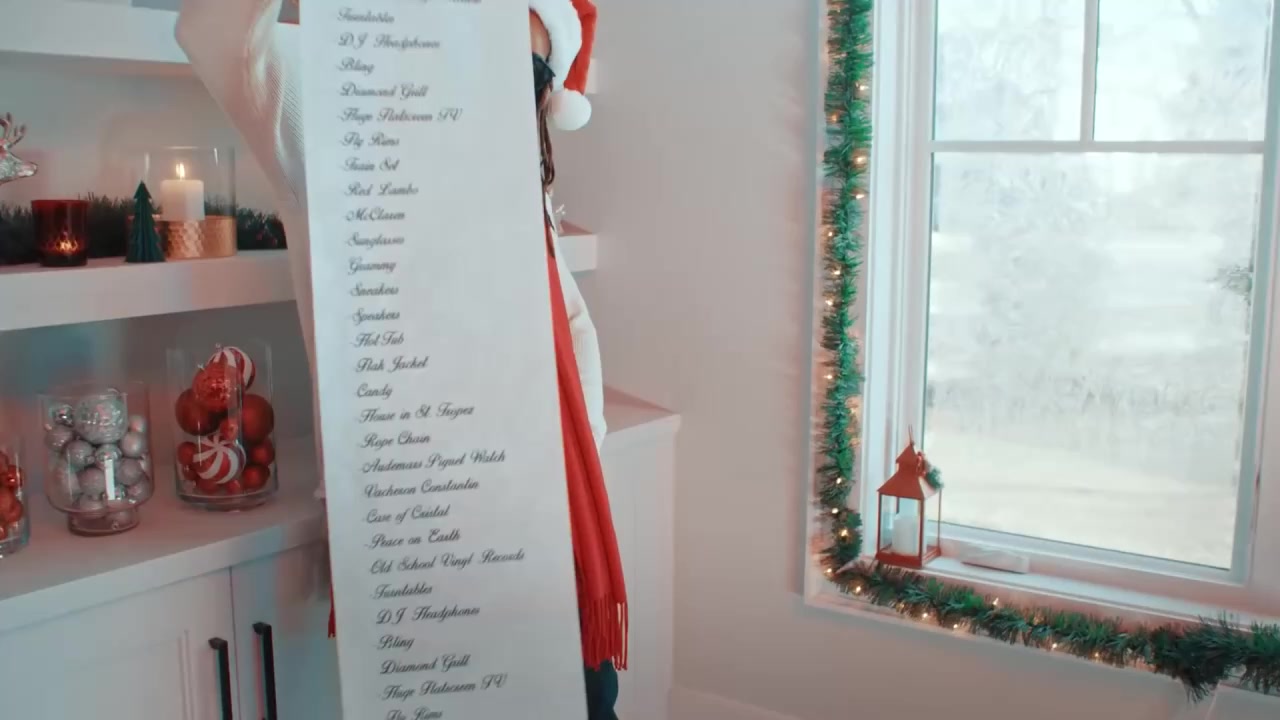 -Turntables
-DJ Headphones
-Bling
-Diamond Grill
-Huge Flatscreen TV
-Fly Rims
-Train Set
-Red Lambo
-McClaren
-Sunglasses
-Grammy
-Sneakers
-Speakers
-Hot Tub
-Flak Jacket
-Candy
-House in St. Tropez
-Rope Chain
-Audemars Piguet Watch
-Vacheron Constantin
-Case of Cristal
-Peace on Earth
-Old School Vinyl Records
-Turntables
-DJ Headphones
-Bling
-Diamond Grill
-Huge Flatscreen TV
-Fly Rims